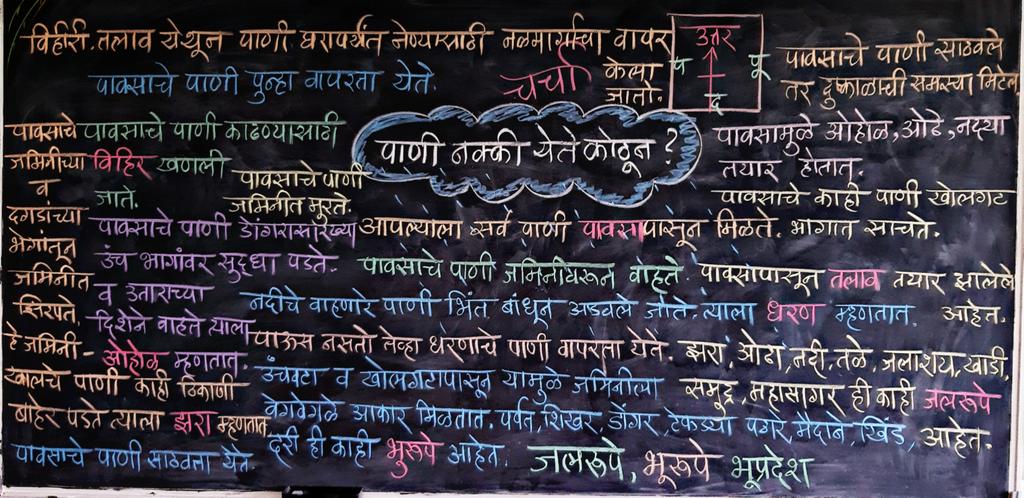 विहीरी, तलाव येथून पाणी घरापर्यंत नेण्यासाठी नळमार्गाचा वापर
केला
जातो.
पावसाचे पाणी पुन्हा वापरता येते.
चर्चा
उत्तर
प
पू
द
पावसाचे पाणी साठवले
तर दुष्काळाची समस्या मिटेल
पाणी नक्की येते कोठून ?
पावसाचे
जमिनीच्या
व
दगडांच्या
भेगांतून
जमिनीत
झिरपते.
हे जमिनी-
खालचे पाणी काही ठिकाणी
बाहेर पडते त्याला झरा म्हणतात.
पावसाचे पाणी साठवता येते.
पावसाचे पाणी काढण्यासाठी
विहिर खणली
जाते.
पावसाचे पाणी
जमिनीत मुरते.
पावसाचे पाणी डोंगरासारख्या
उंच भागांवर सुद्धा पडते.
व उताराच्या
दिशेने वाहते त्याला
ओहोळ म्हणतात.
आपल्याला सर्व पाणी पावसापासून मिळते.
पावसाचे पाणी जमिनीवरून वाहते.
नदीचे वाहणारे पाणी भिंत बांधून अडवले जाते. त्याला धरण म्हणतात.
पाऊस नसतो तेव्हा धरणाचे पाणी वापरता येते.
उंचवटा व खोलगटापासून यामुळे जमिनीला
वेगवेगळे आकार मिळतात. पर्वत, शिखर, डोंगर, टेकड्या पठार, मैदाने, खिंड,
दरी ही काही भुरूपे आहेत.
पावसामुळे ओहोळ, ओढे, नद्या
तयार होतात.
पावसाचे काही पाणी खोलगट
भागात साचते.
पावसापासून तलाव तयार झालेले
आहेत.
झरा, ओढा, नदी, तळे, जलाशय, खाडी,
समुद्र, महासागर ही काही जलरूपे
आहेत.
जलरूपे, भूरूपे भूप्रदेश